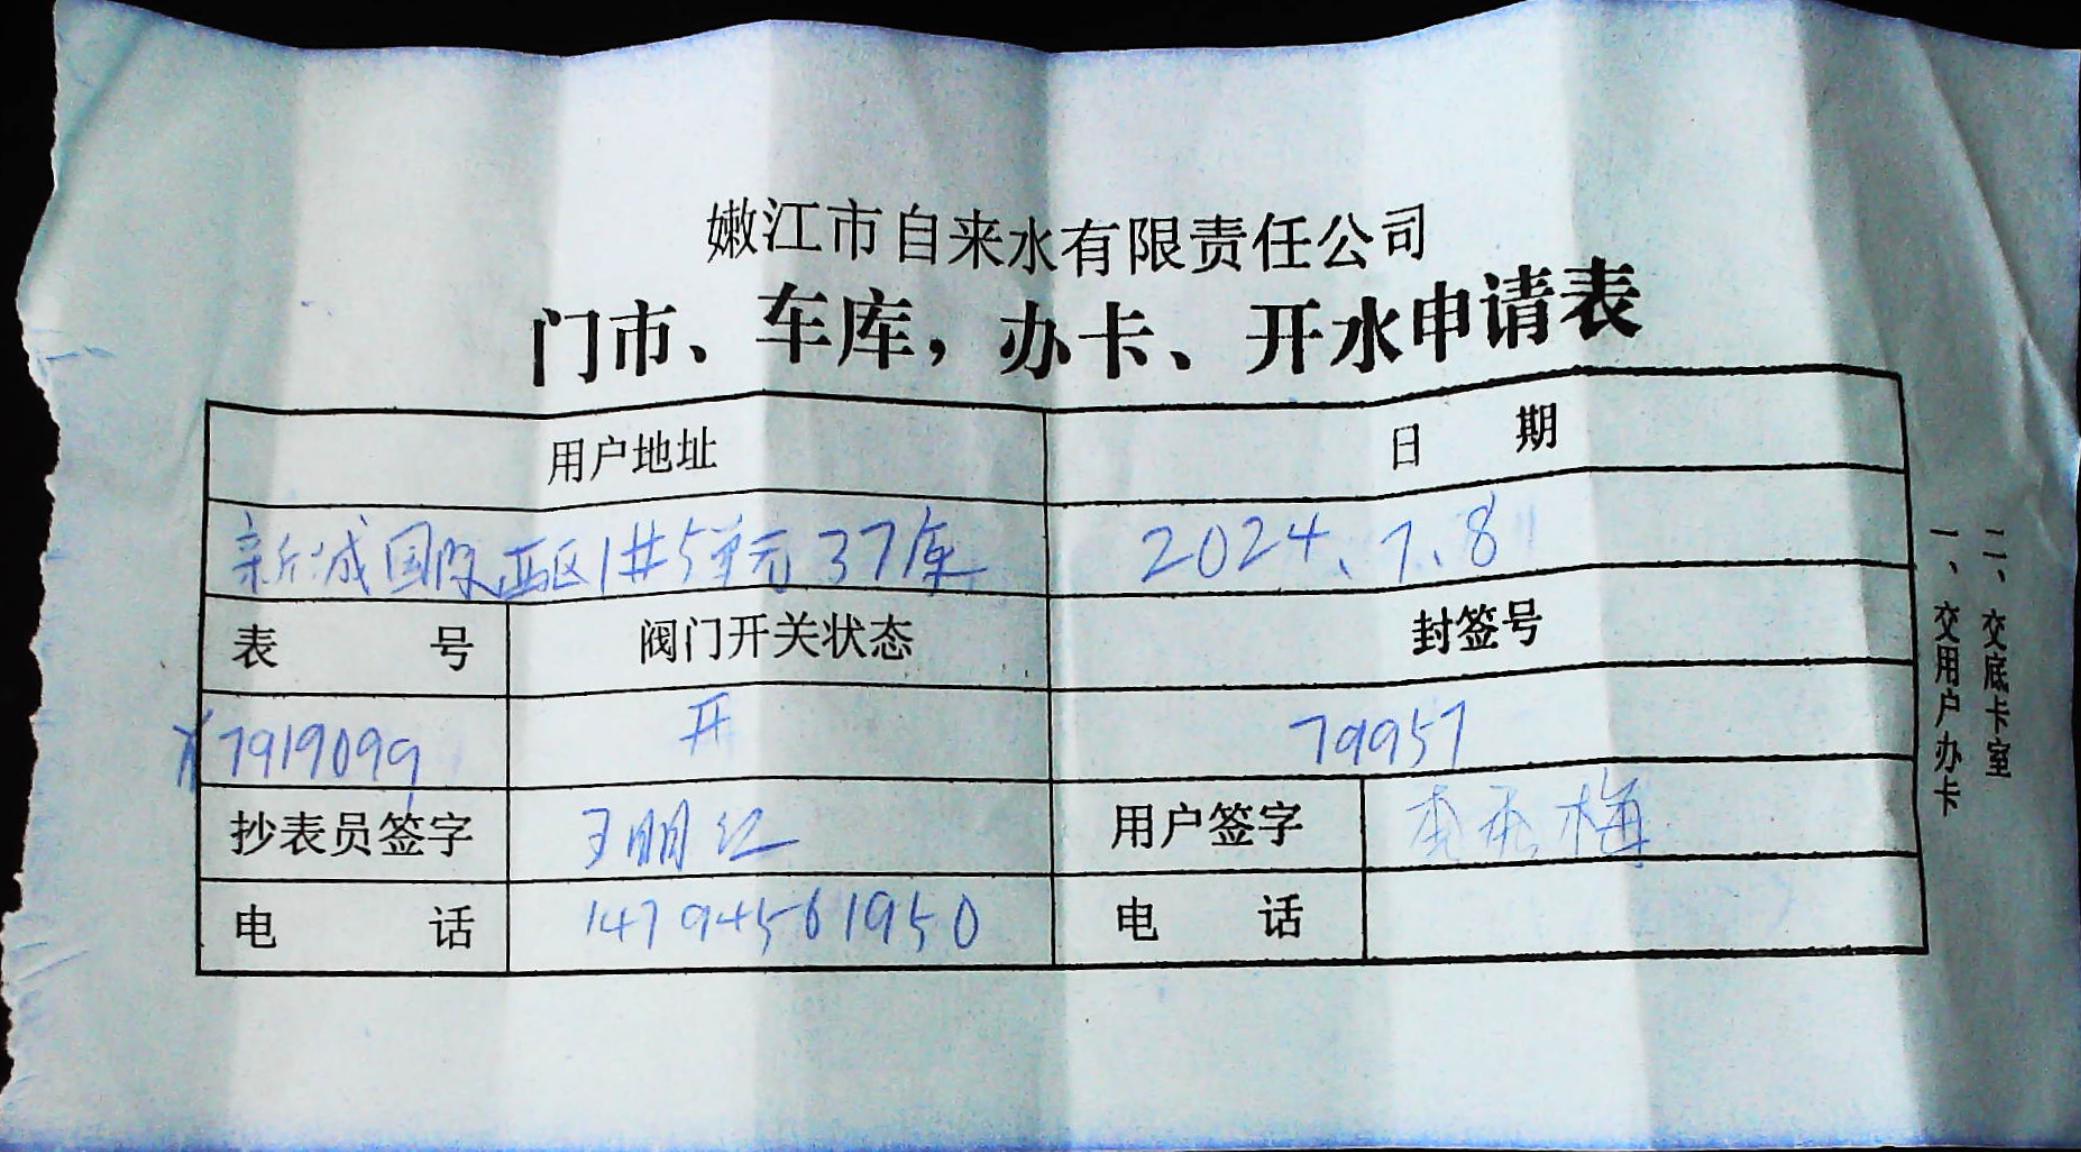 嫩江市自来水有限责任公司
门市、车库，办卡、开水申请表
用户地址 日期
新城国际西区1#5单元37库 2024、7、8
表号 阀门开关状态 封签号
7919099 开 79957
抄表员签字 王朋江 用户签字 李 梅
电话 14794561950 电话
一、交用户办卡
二、交底卡室